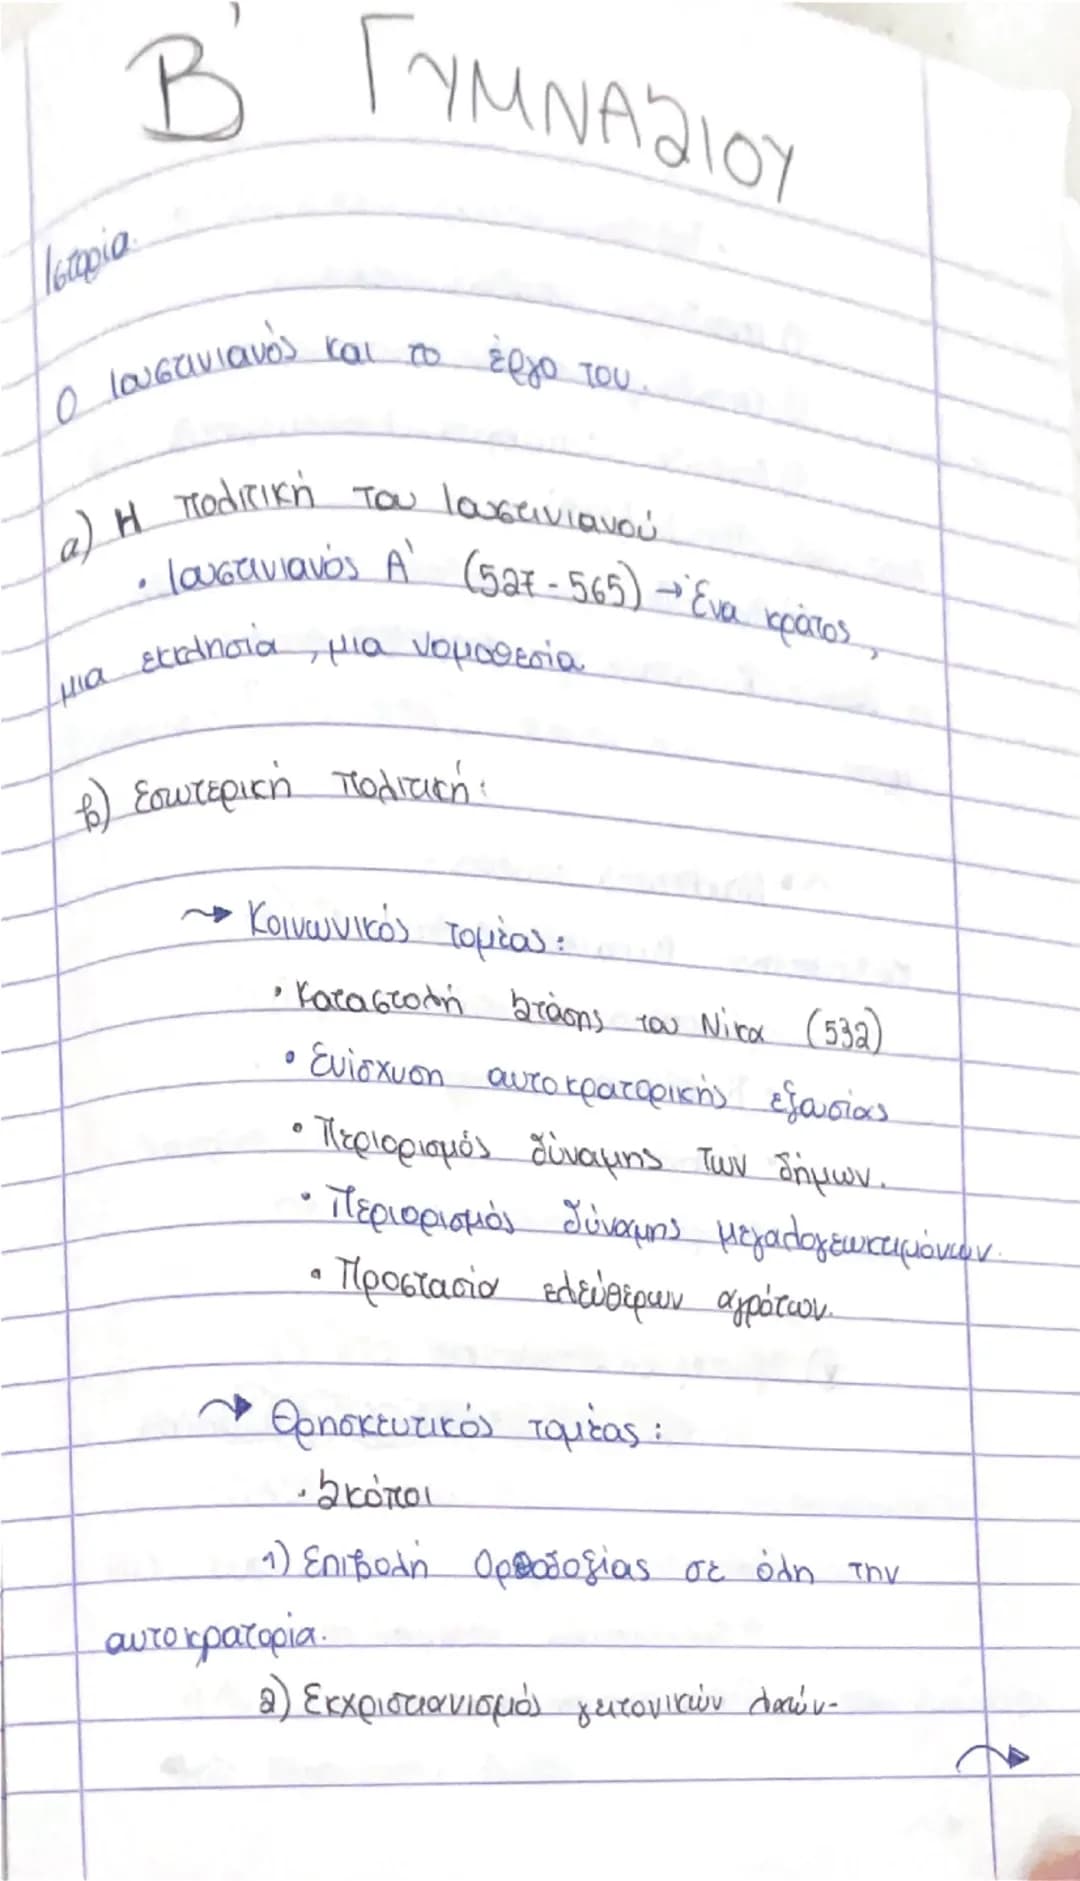 Β' ΓΥΜΝΑΣΙΟΥ
Ιστορία
Ο Ιουστινιανός και το έργο του.
α) Η πολιτική του Ιουστινιανού
• Ιουστινιανός Α' (527-565) → Ένα κράτος,
μια εκκλησία, μια νομοθεσία.
β) Εσωτερική πολιτική:
→ Κοινωνικός τομέας:
• Καταστολή Στάσης του Νίκα (532)
• Ενίσχυση αυτοκρατορικής εξουσίας
• Περιορισμός δύναμης των δήμων.
• Περιορισμός δύναμης μεγαλογεωκτημόνων.
• Προστασία ελεύθερων αγρότων.
→ Θρησκευτικός τομέας:
• Σκόποι
1) Επιβολή Ορθοδοξίας σε όλη την
αυτοκρατορία.
2) Εκχριστιανισμός γειτονικών λαών-
→